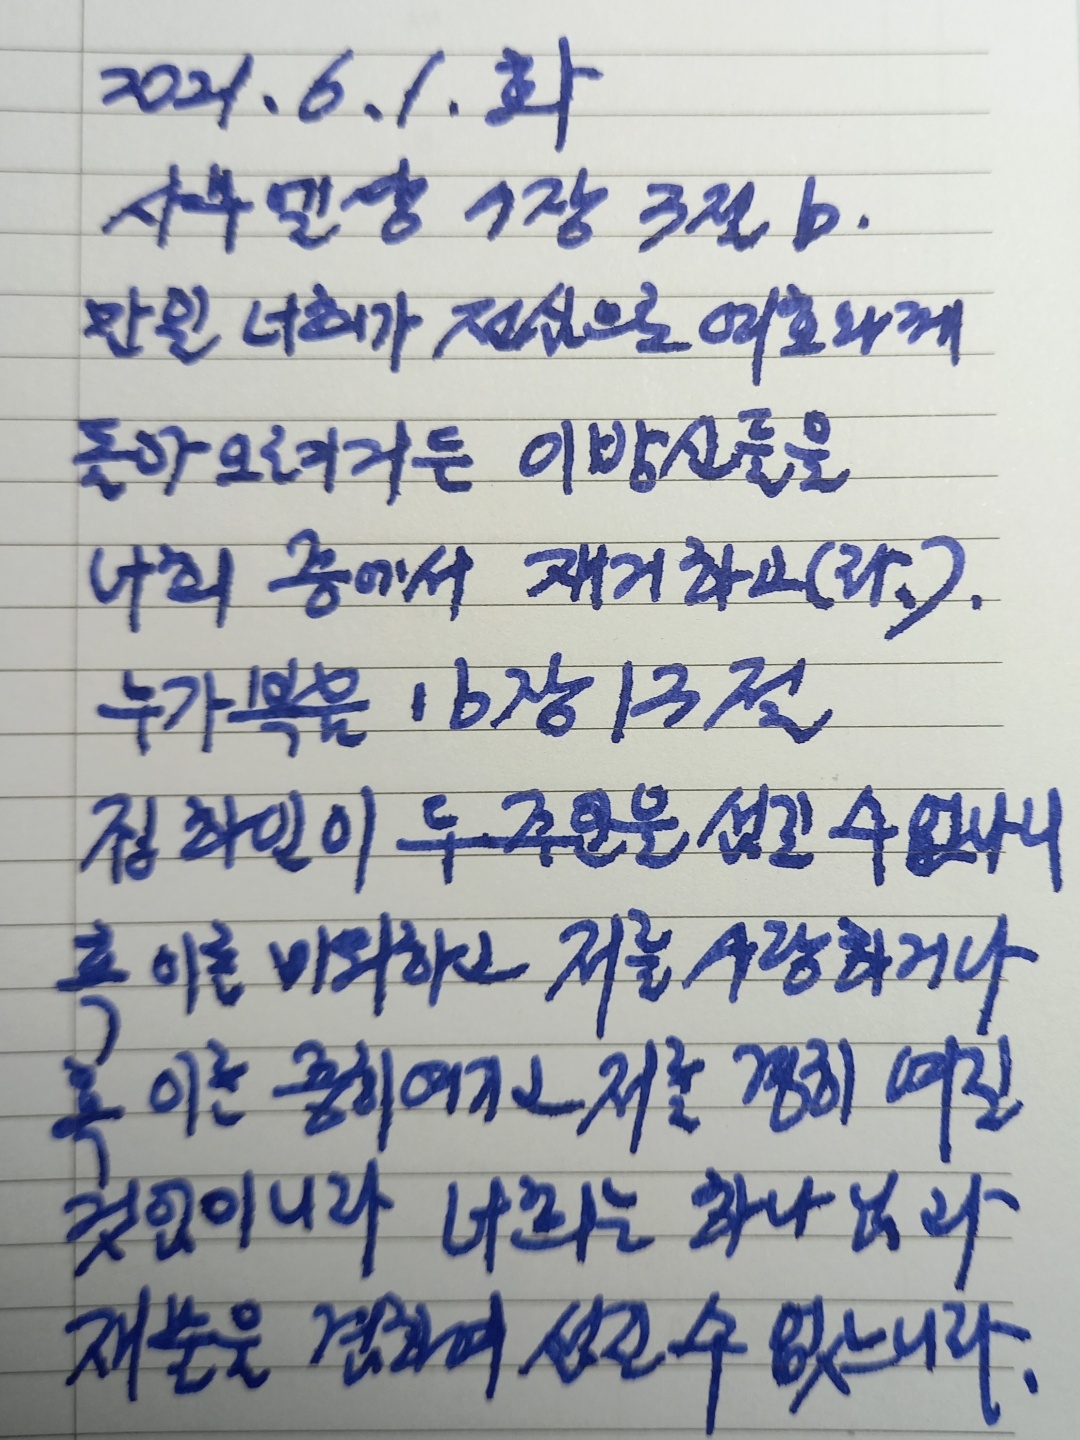 2021. 6. 1. 화
사무엘상 7장 3절 b.
만일 너희가 전심으로 여호와께
돌아오려거든 이방신들을
너희 중에서 제거하고(라.).
누가복음 16장 13절
집 하인이 두 주인을 섬길 수 없나니
혹 이를 미워하고 저를 사랑하거나
혹 이를 중히 여기고 저를 경히 여길
것임이니라 너희는 하나님과
재물을 겸하여 섬길 수 없느니라.